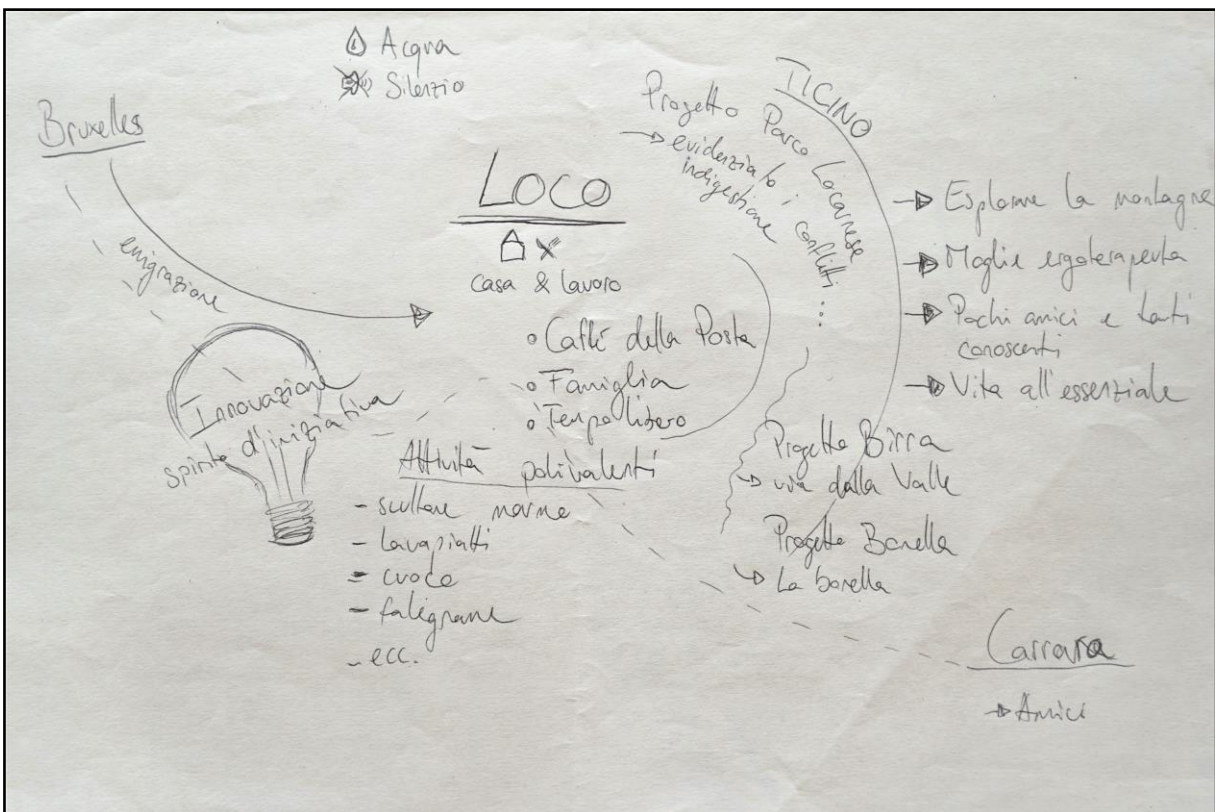 Acqua
Silenzio
Bruxelles
emigrazione
LOCO
casa & lavoro
Caffè della Posta
Famiglia
Tempo libero
Innovazione
spirito d'iniziativa
Attività polivalenti
- scultore marmo
- lavapiatti
- cuoco
- falegname
- ecc.
TICINO
Progetto Parco Locarnese
→ evidenziato i conflitti...
indigestione
→ Esplorare la montagne
→ Moglie ergoterapeuta
→ Pochi amici e tanti
conoscenti
→ Vita all'essenziale
Progetto Birra
↳ via dalla Valle
Progetto Barella
↳ La barella
Carrara
→ Amici